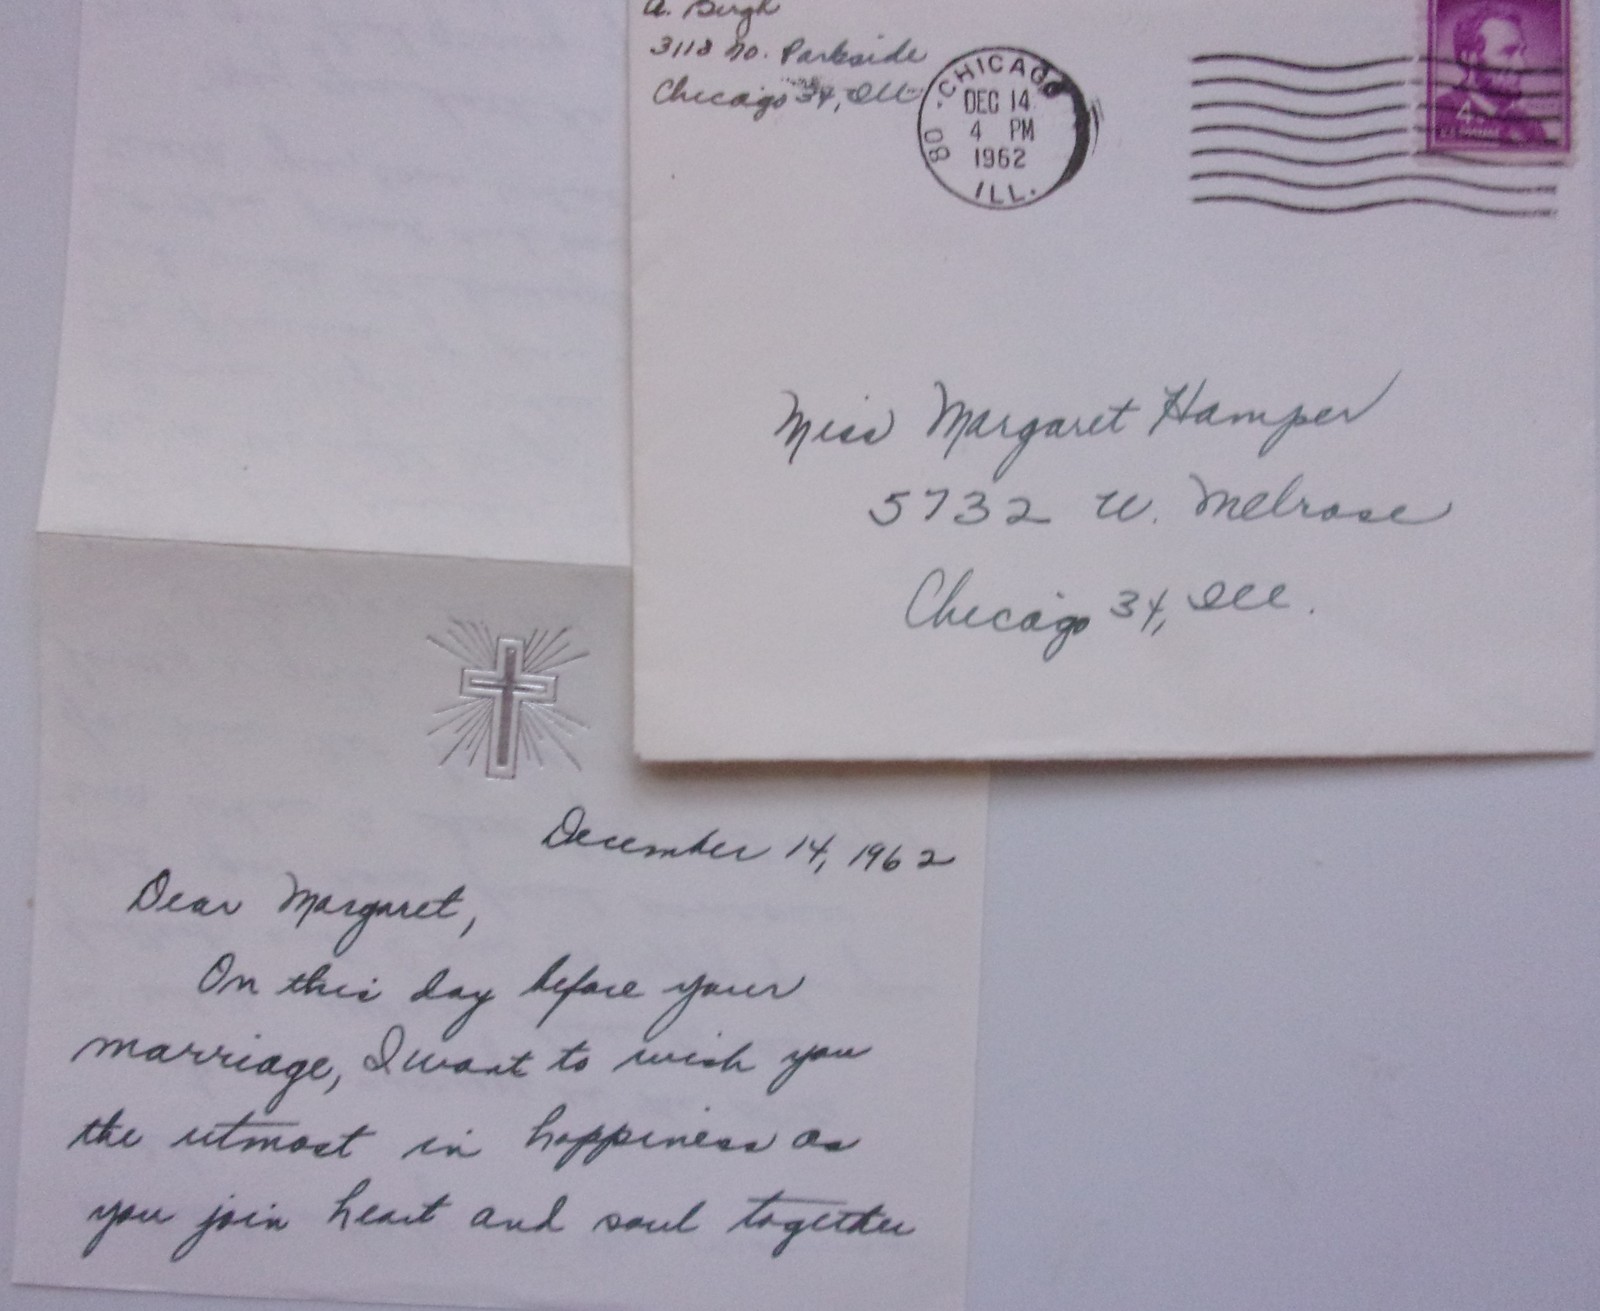 A. Bergh
3118 No. Parkside
Chicago 34, Ill
CHICAGO
DEC 14
4 PM
1962
80
ILL.
4¢
Miss Margaret Hamper
5732 W. Melrose
Chicago 34, Ill.
December 14, 1962
Dear Margaret,
On this day before your
marriage, I want to wish you
the utmost in happiness as
you join heart and soul together